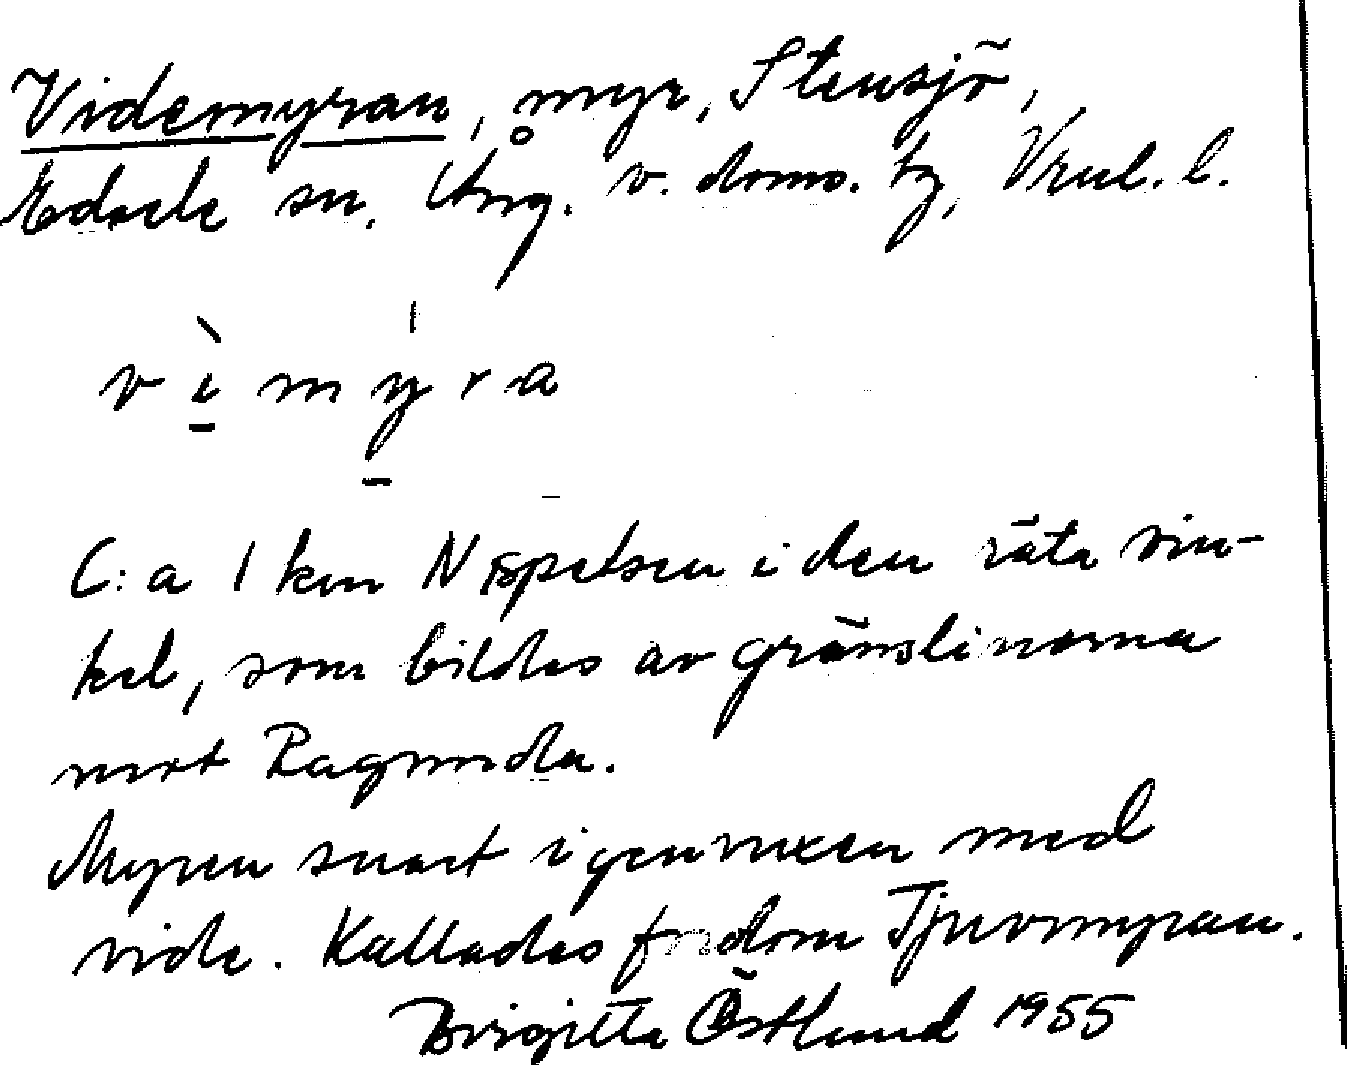 Videmyran, myr, Stensjö,
Edsele sn, Ång. v. doms. tg, Vnl. l.
v ì m ý r a
C:a 1 km N spetsen i den räta vin-
kel, som bildas av gränslinorna
mot Ragunda.
Myren snart igenvuxen med
vide. Kallades fordom Tjuvmyran.
Birgitta Östlund 1955